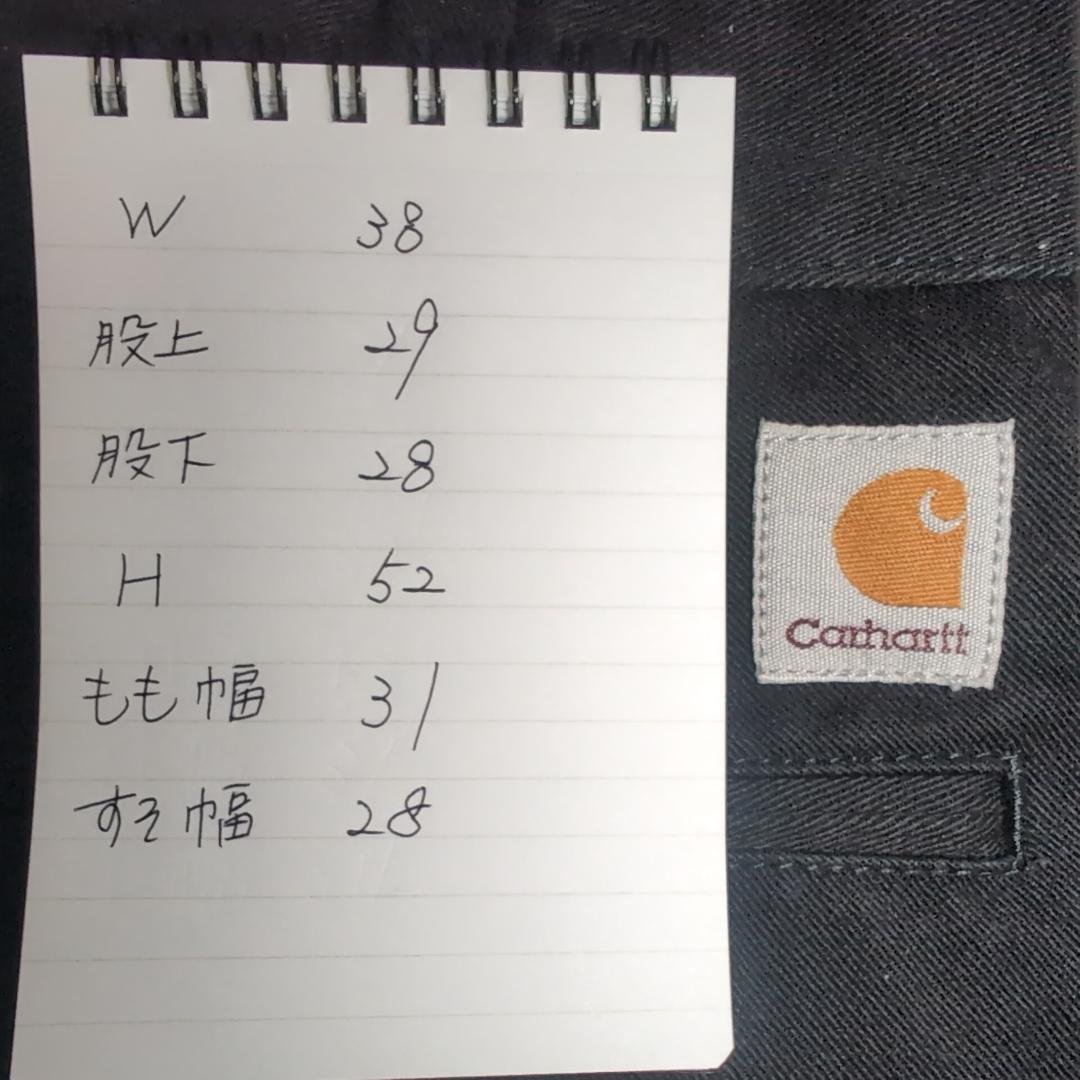 W 38
股上 29
股下 28
H 52
もも幅 31
すそ幅 28
Carhartt